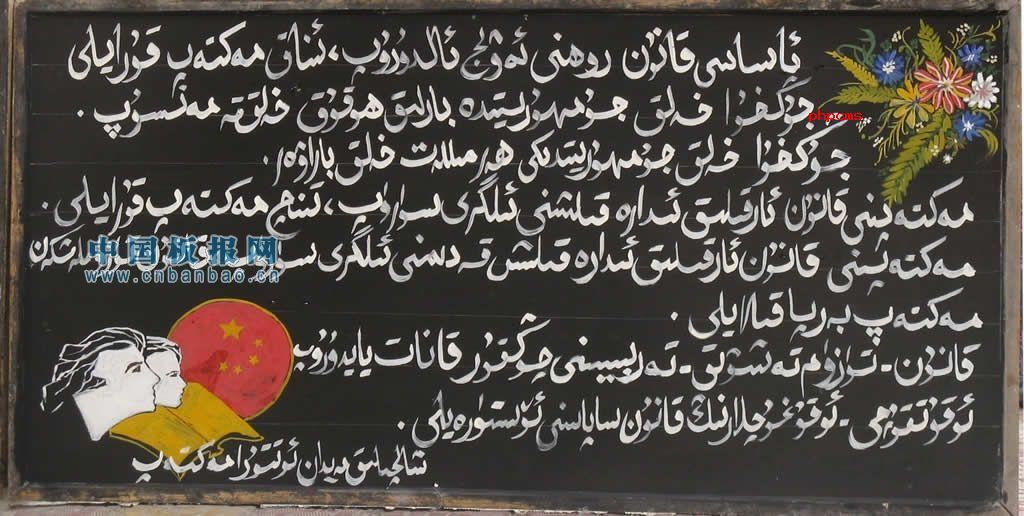 ئاساسىي قانۇن روھىنى ئەۋج ئالدۇرۇپ، ئىناق مەكتەپ قۇرايلى
جۇڭخۇا خەلق جۇمھۇرىيىتىدە بارلىق ھوقۇق خەلققە مەنسۇپ.
جۇڭخۇا خەلق جۇمھۇرىيىتىدىكى ھەر مىللەت خەلق باراۋەر.
مەكتەپنى قانۇن ئارقىلىق ئىدارە قىلىشنى ئىلگىرى سۈرۈپ، تىنچ مەكتەپ قۇرايلى.
مەكتەپنى قانۇن ئارقىلىق ئىدارە قىلىش قەدىمىنى ئىلگىرى
مەكتەپ بەرپا قىلايلى.
قانۇن - تۈزۈم تەشۋىق - تەربىيىسىنى چوڭقۇر قانات يايدۇرۇپ
ئوقۇتقۇچى - ئوقۇغۇچىلارنىڭ قانۇن ساپاسىنى ئۆستۈرەيلى.
مەكتەپ
phpcms
中国板报网
www.cnbanbao.cn